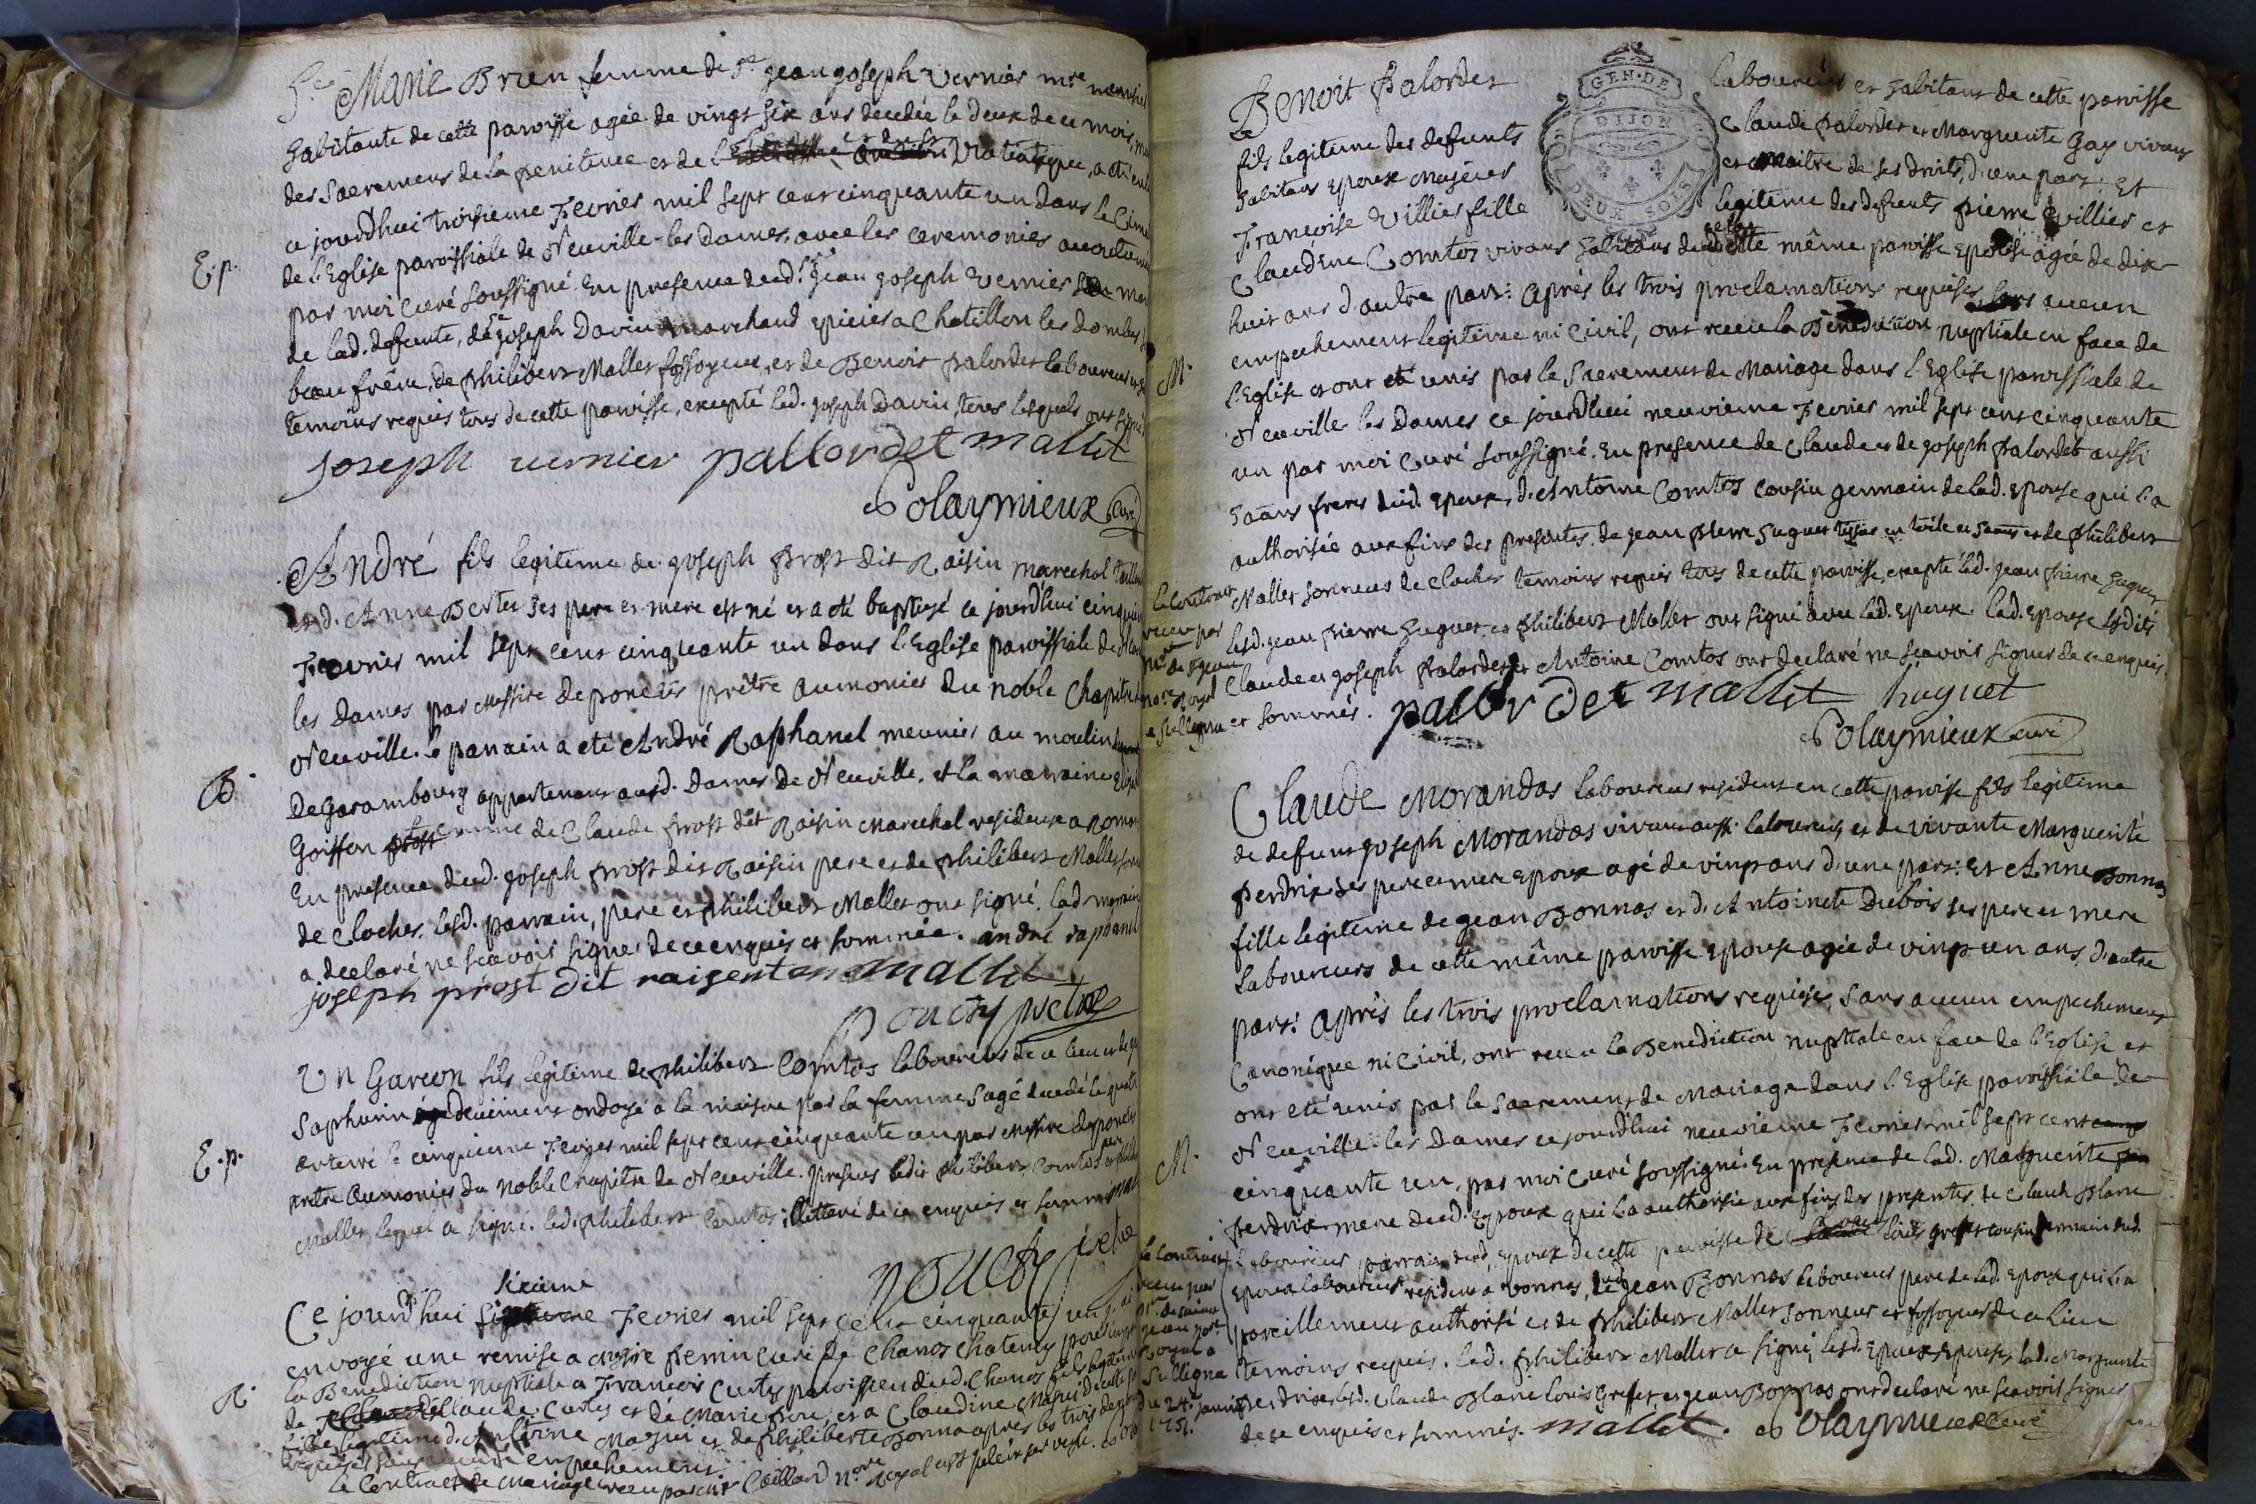 Sre Marie Brun femme de Sr jean joseph vernier mre
habitante de cette paroisse agée de vingt six ans decedée le deux de ce mois,
des Sacremens de la penitence et de Viatique, a été
ce jourdhuei troisieme Fevrier mil sept cent cinquante un dans le Cime
de l'Eglise paroissiale de Neuville-les Dames, avec les ceremonies accoutumé
E. p.
par moi curé soussigné. En presence dud. Sr jean joseph vernier
de lad. defunte, de joseph Davin marchand epicier a Chatillon les dombes
beau frére, de philibert Mallet fossoyeur, et de Benoit palordet laboureur
temoins requis tous de cette paroisse, excepté led. joseph Davin tous lesquels ont signé
joseph vernier pallordet mallit
Polaymieux curé
André fils legitime de joseph prost dit Raisin marechal
et d. Anne Bertet ses pere et mere est né et a été baptisé ce jourdhuei cinquie
Fevrier mil sept cent cinquante un dans l'Eglise paroissiale de
les Dames par Messire deponcet prêtre aumonier du noble Chapitre
Neuville. le parrain a été André Raphanel meunier au moulin
B.
De garambourg appartenant ausd. Dames de Neuville, et la marraine
Goiffon femme de Claude prost dit Raisin marechal residens a
En presence dud. joseph prost dit Raisin pere et de philibert Mallet
de cloches. lesd. parrain, pere et philibert Mallet ont signé. lad.
a declaré ne scavoir signer de ce enquis et sommée. andré raphanel
joseph prost dit raisent mallit
Poncety pretre
Un Garcon fils legitime de philibert Comtos laboureur de ce lieu
Saphurin deüement ondoyé a la maison par la femme sage decedé le quatr
enterré le cinquieme Fevrier mil sept cent cinquante un par Messire deponcet
E. p.
prêtre aumonier du noble Chapitre de Neuville. presens ledit philibert Comtos
Mallet lequel a signé. led. philibert Comtos illitteré de ce enquis et sommé
poncety pretre
sixieme
Ce jourd'huei Fevrier mil sept cent cinquante un j'ai
envoyé une remise a Messire curé de Chanos chatenay pour
la Benediction Nuptiale a Francois Curtet paroissien dud. Chanos fils legitime
R.
de Claude Curtet et de Marie et a Claudine
fille legitime d. Antoine et de philiberte Bonna après les trois
requises sans aucun empechement.
le Contract de mariage receu par Me Caillard Nore Royal
Benoit Palordet laboureur et habitant de cette paroisse
fils legitime des defunts Claude palordet et Marguerite Gay vivans
habitans epoux Majeur et maitre de ses droits, d'une part: Et
Francoise Villier fille legitime des defunts pierre Villier et
GEN. DE
DIJON
DEUX SOLS
Claudine Comtos vivans habitans de cette même paroisse epouse agée de dix
huit ans d'autre part: après les trois proclamations requises sans aucun
empechement legitime ni civil, ont receu la Benediction nuptiale en face de
M.
l'Eglise et ont été unis par le Sacrement de Mariage dans l'Eglise paroissiale de
Neuville les Dames ce jourdhuei neuvieme Fevrier mil sept cent cinquante
un par moi curé soussigné. En presence de Claude et de joseph palordet aussi
frères dud. epoux, d. Antoine Comtos cousin germain de lad. epouse qui l'a
authorisée aux fins des presentes, de jean pierre huguet tissier en toile et de philibert
Mallet sonneur de cloches temoins requis tous de cette paroisse, excepté led. jean pierre huguet
lesd. jean pierre huguet et philibert Mallet ont signé avec led. epoux. lad. epouse lesdits
Claude et joseph palordet et Antoine Comtos ont declaré ne scavoir signer de ce enquis
et sommés. pallordet mallit huguet
Polaymieux curé
le contract
receu par
Me de st jean
nore Royal
a Sulligna
Claude Morandas laboureur residens en cette paroisse fils legitime
de defunt joseph Morandas vivant aussi laboureur, et de vivante Marguerite
Perdrix ses pere et mere epoux agé de vingt ans d'une part: Et Anne Bonnas
fille legitime de jean Bonnas et d. Antoinete Dubois ses pere et mere
Laboureurs de cette même paroisse epouse agée de vingt un ans, d'autre
part: après les trois proclamations requises sans aucun empechement
Canonique ni civil, ont receu la Benediction nuptiale en face de l'Eglise et
ont eté unis par le Sacrement de Mariage dans l'Eglise paroissiale de
Neuville les Dames ce jourd'huei neuvieme Fevrier mil sept cent
M.
cinquante un, par moi curé soussigné. En presence de lad. Marguerite
perdrix mere dud. Epoux qui l'a authorisé aux fins des presentes, de Claude Blanc
laboureur parrain dud. epoux de cette paroisse de Louis Greffet cousin germain dud.
epoux laboureur residens a vonnas, dud. jean Bonnas laboureur pere de lad. epouse qui l'a
pareillement authorisé et de philibert Mallet sonneur et fossoyeur de ce lieu
temoins requis. led. philibert Mallet a signé, lesd. epoux, epouse, lad. Marguerite
perdrix, lesd. Claude Blanc louis Greffet et jean Bonnas ont declaré ne scavoir signer
de ce enquis et sommés. mallit. Polaymieux curé
le contract
receu par
Me de saint
jean nore
Royal a
Sulligna
du 24e janvier
1751.